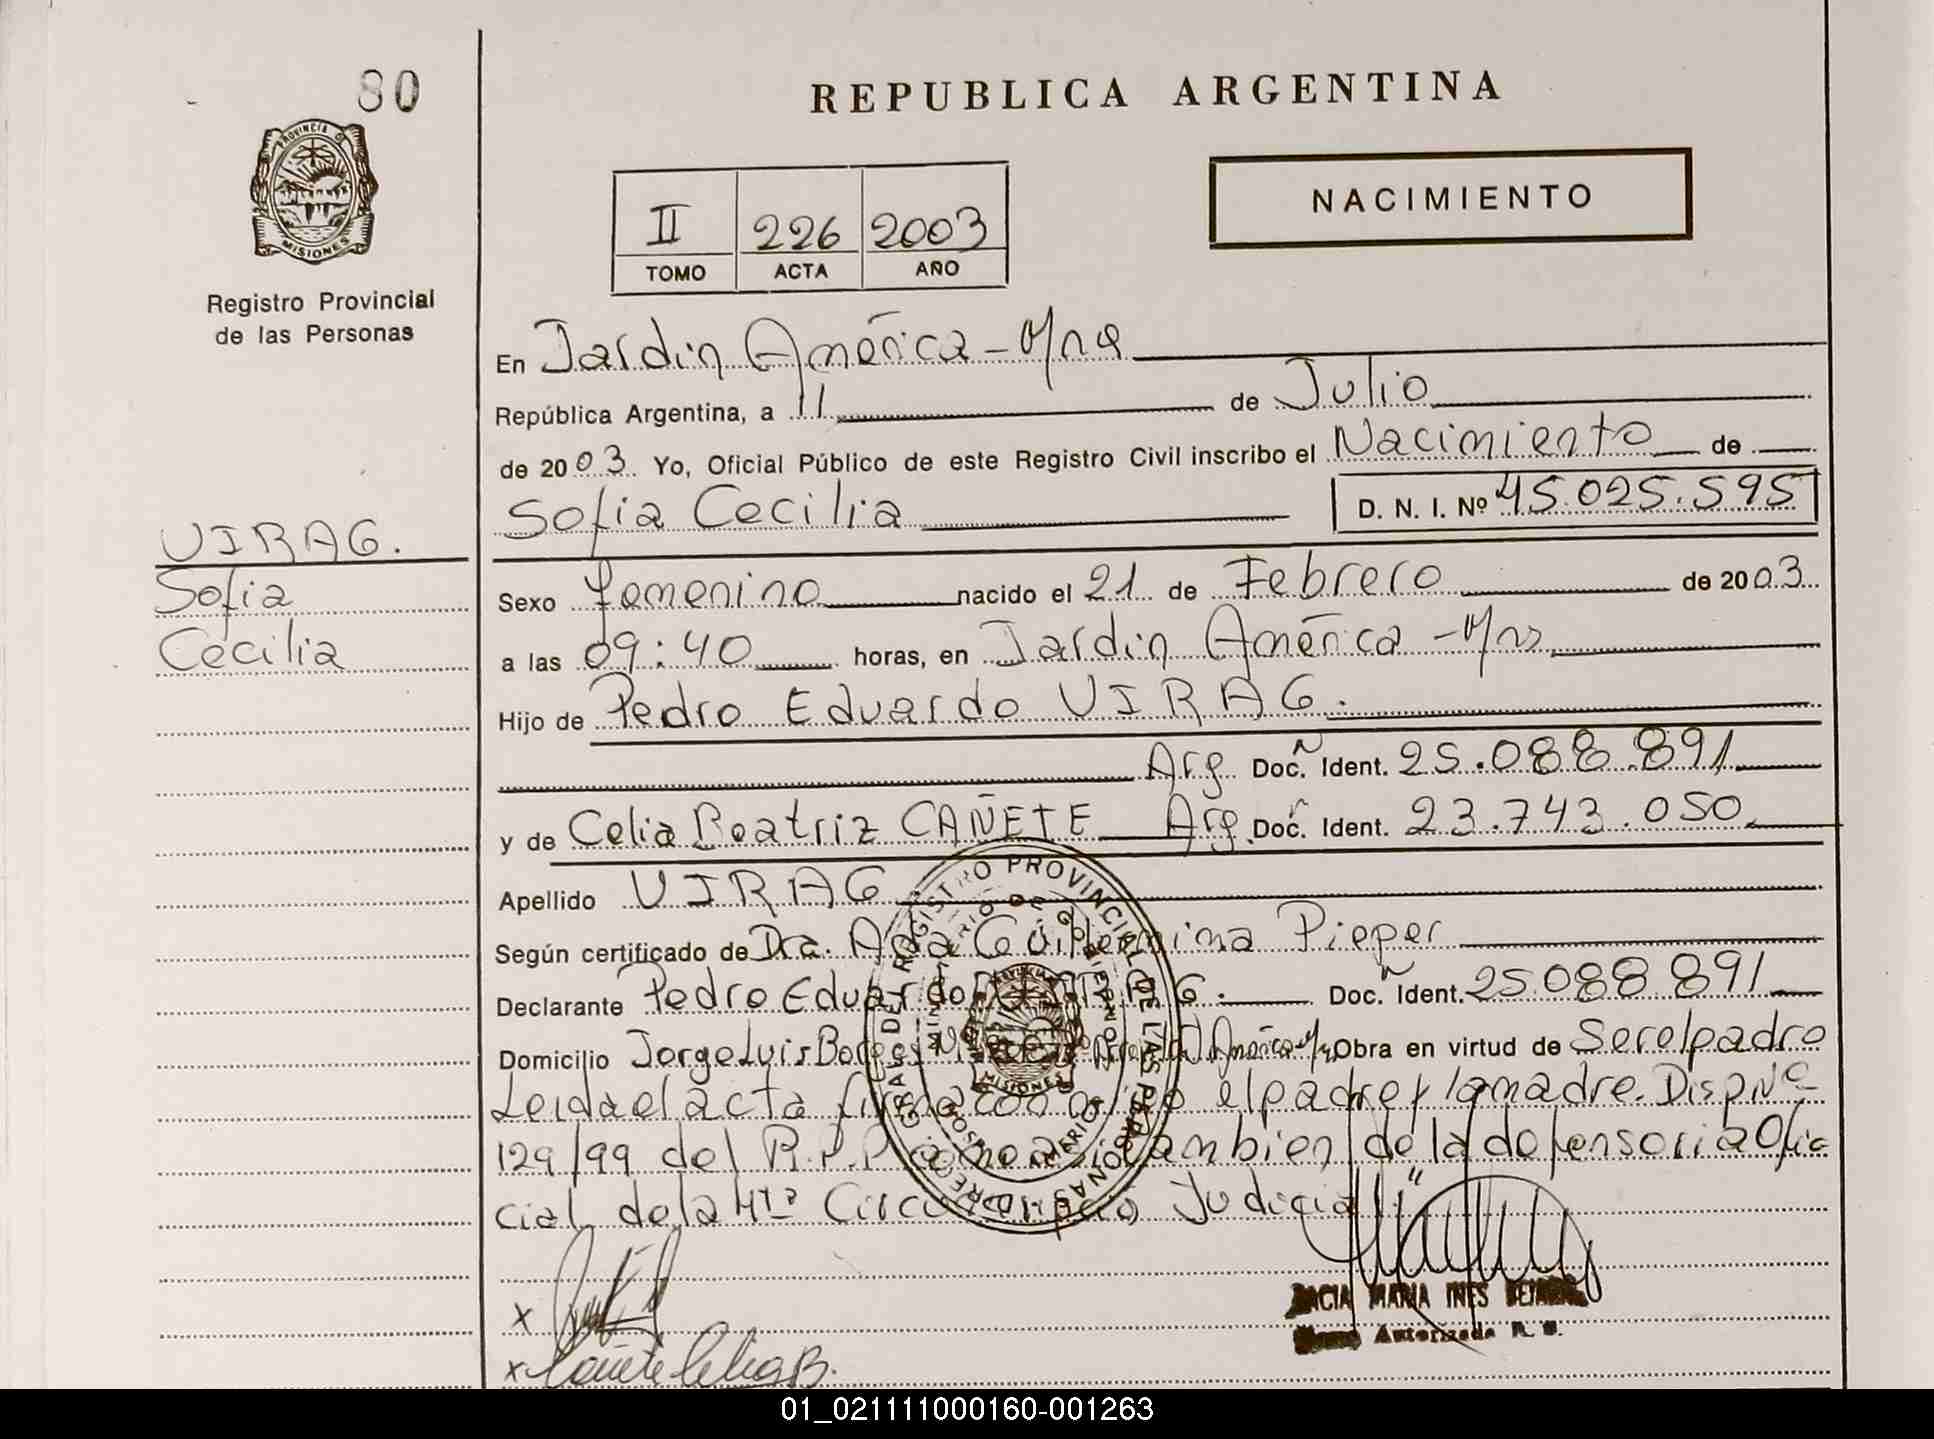 80
REPUBLICA ARGENTINA
PROVINCIA DE
MISIONES
Registro Provincial
de las Personas
II 226 2003
TOMO ACTA AÑO
NACIMIENTO
En Jardin América - Mnes
República Argentina, a 11 de Julio
de 2003 Yo, Oficial Público de este Registro Civil inscribo el Nacimiento de
Sofia Cecilia D. N. I. Nº 45.025.595
VIRAG.
Sofia
Cecilia
Sexo femenino nacido el 21 de Febrero de 2003
a las 09:40 horas, en Jardin América - Mnes
Hijo de Pedro Eduardo VIRAG.
Arg. Doc. Ident. 25.088.891
y de Celia Beatriz CAÑETE Arg. Doc. Ident. 23.743.050
Apellido VIRAG
Según certificado de Dra. Guillermina Pieper
Declarante Pedro Eduardo VIRAG. Doc. Ident. 25.088.891
Domicilio Jorge Luis Borges América Obra en virtud de Ser el padre
Leida el acta el padre y la madre. Disp Nº
129/99 del R.P.P. tambien de la defensoria Ofi
cial de la 4ta Circunscripción Judicial"
REGISTRO PROVINCIAL DE LAS PERSONAS
MINISTERIO DE GOBIERNO
MISIONES
MARIA INES
Autorizada
x
x Cañete Celia B.
01_021111000160-001263